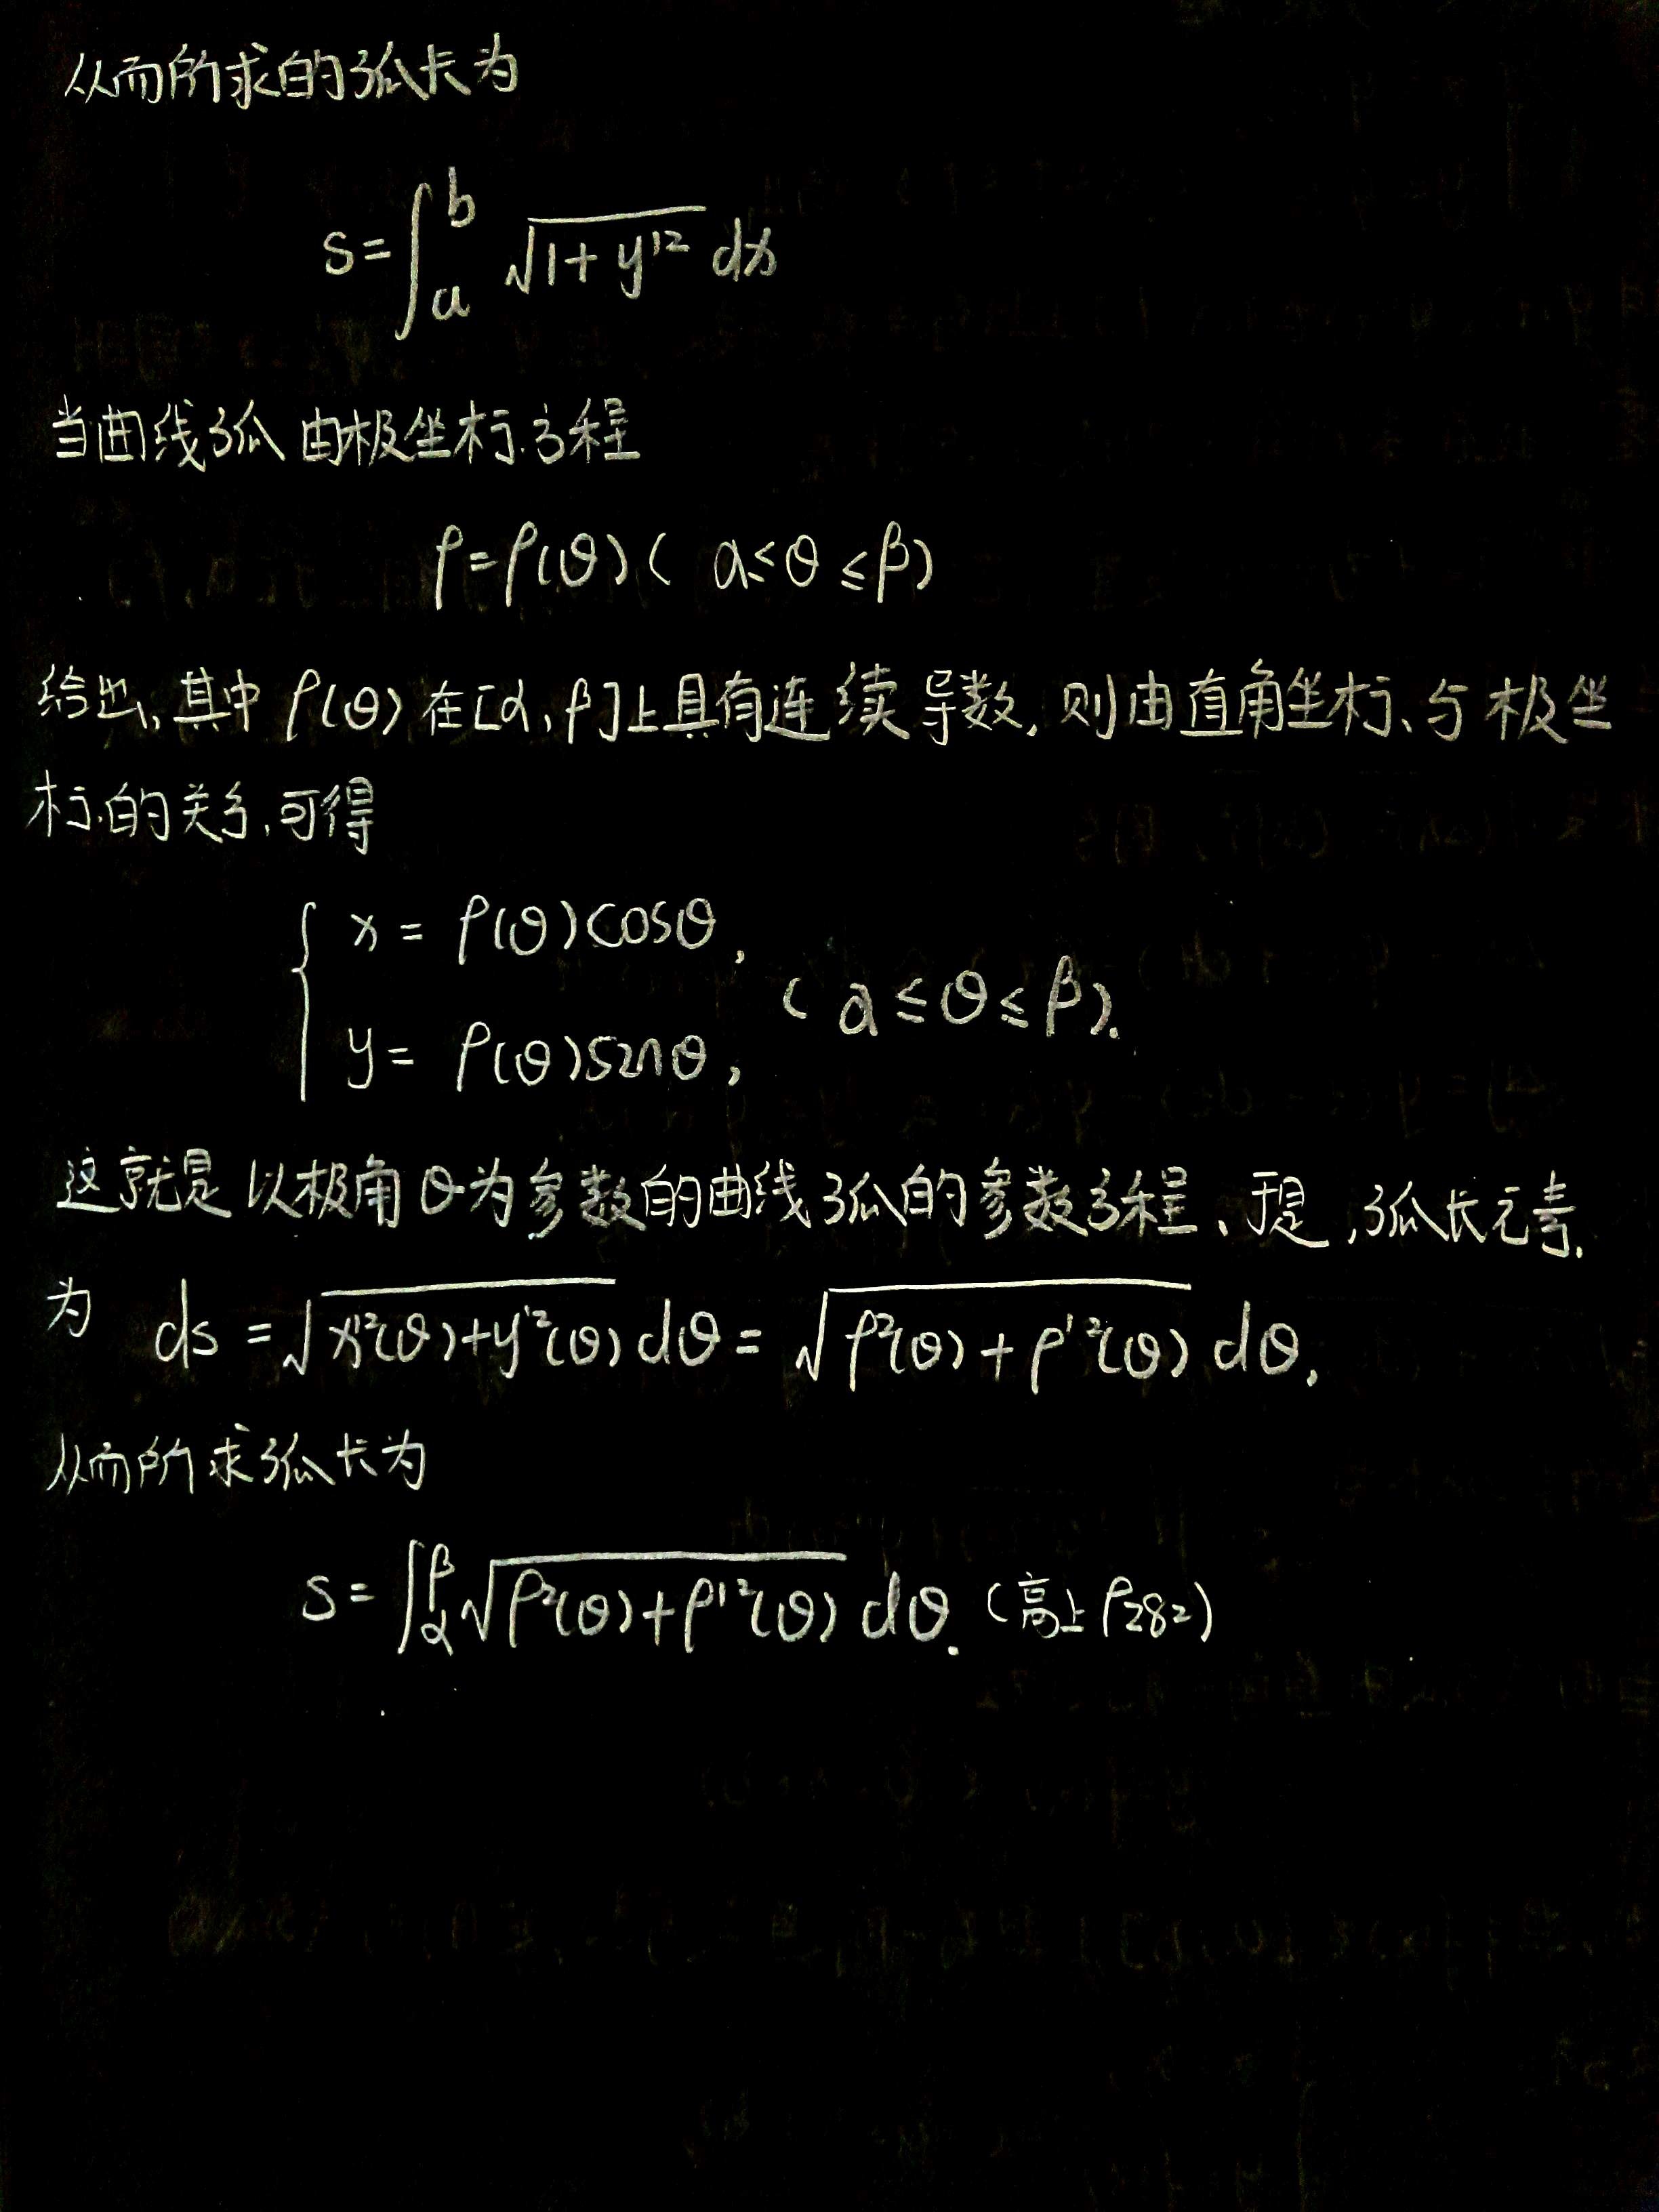 从而所求的弧长为
s=∫_a^b √(1+y'²) dx
当曲线弧由极坐标方程
ρ=ρ(θ)( α≤θ≤β)
给出,其中ρ(θ)在[α,β]上具有连续导数,则由直角坐标、与极坐
标的关系,可得
{ x = ρ(θ)cosθ,
( α≤θ≤β).
y = ρ(θ)sinθ,
这就是以极角θ为参数的曲线弧的参数方程、于是,弧长元素.
为 ds = √(x'²(θ)+y'²(θ)) dθ = √(ρ²(θ)+ρ'²(θ)) dθ,
从而所求弧长为
s = ∫_α^β √(ρ²(θ)+ρ'²(θ)) dθ. (高上P282)